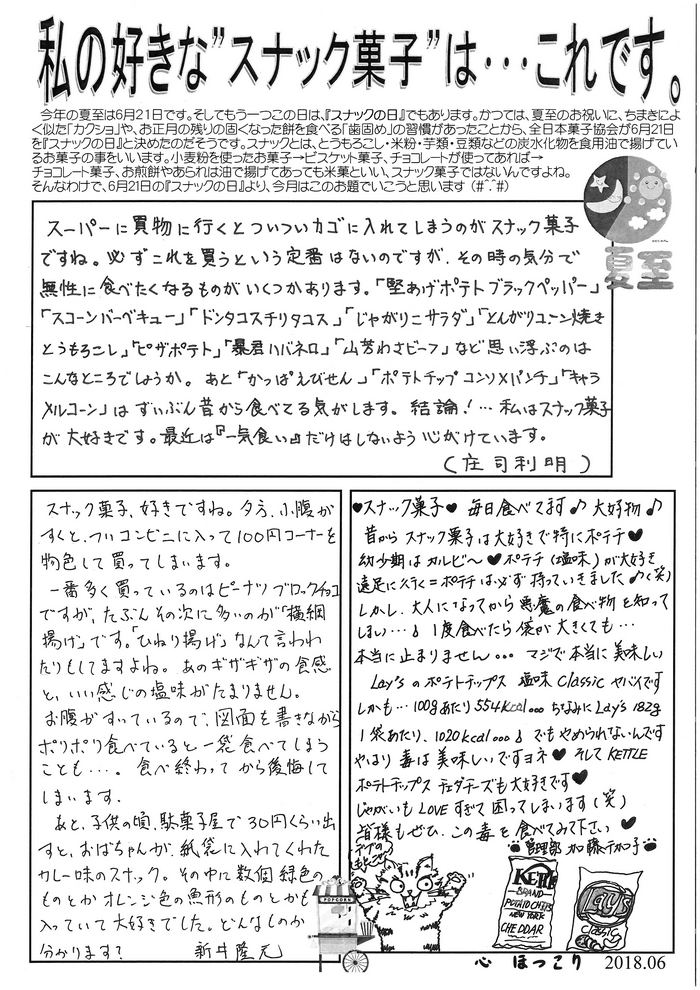 私の好きな”スナック菓子”は・・・これです。
今年の夏至は6月21日です。そしてもう一つこの日は、『スナックの日』でもあります。かつては、夏至のお祝いに、ちまきによ
く似た「カクショ」や、お正月の残りの固くなった餅を食べる「歯固め」の習慣があったことから、全日本菓子協会が6月21日
を『スナックの日』と決めたのだそうです。スナックとは、とうもろこし・米粉・芋類・豆類などの炭水化物を食用油で揚げてい
るお菓子の事をいいます。小麦粉を使ったお菓子→ビスケット菓子、チョコレートが使ってあれば→
チョコレート菓子、お煎餅やあられは油で揚げてあっても米菓といい、スナック菓子ではないんですよね。
そんなわけで、6月21日の『スナックの日』より、今月はこのお題でいこうと思います (#^.^#)
夏至
スーパーに買物に行くとついついカゴに入れてしまうのがスナック菓子
ですね。必ずこれを買うという定番はないのですが、その時の気分で
無性に食べたくなるものがいくつかあります。「堅あげポテトブラックペッパー」
「スコーンバーベキュー」「ドンタコスチリタコス」「じゃがりこサラダ」「とんがりコーン焼き
とうもろこし」「ピザポテト」「暴君ハバネロ」「山芳わさビーフ」など思い浮ぶのは
こんなところでしょうか。あと「かっぱえびせん」「ポテトチップコンソメパンチ」「キャラ
メルコーン」はずいぶん昔から食べてる気がします。結論!…私はスナック菓子
が大好きです。最近は『一気食い』だけはしないよう心がけています。
(庄司利明)
スナック菓子、好きですね。夕方、小腹が
すくと、ついコンビニに入って100円コーナーを
物色して買ってしまいます。
一番多く買っているのはピーナツブロックチョコ
ですが、たぶんその次に多いのが「横綱
揚げ」です。「ひねり揚げ」なんて言われ
たりもしてますよね。あのギザギザの食感
と、いい感じの塩味がたまりません。
お腹がすいているので、図面を書きながら
ポリポリ食べていると一袋食べてしまう
ことも…。食べ終わってから後悔して
しまいます。
あと、子供の頃、駄菓子屋で30円くらい出
すと、おばちゃんが、紙袋に入れてくれた
カレー味のスナック。その中に数個緑色の
ものとかオレンジ色の魚形のものとかも
入っていて大好きでした。どんなものか
分かります?　新井隆元
♥スナック菓子♥ 毎日食べてます♪大好物♪
昔からスナック菓子は大好きで特にポテチ♥
幼少期はカルビ〜♥ポテチ(塩味)が大好き
遠足に行く=ポテチは必ず持っていきました♪(笑)
しかし、大人になってから悪魔の食べ物を知って
しまい…♪ 1度食べたら袋が大きくても…
本当に止まりません… マジで本当に美味しい
Lay'sのポテトチップス 塩味 Classic ヤバイです
しかも…100gあたり554kcal… ちなみにLay's 182g
1袋あたり、1020kcal…♪ でもやめられないんです
やはり毒は美味しいですヨネ♥ そして KETTLE
ポテトチップス チェダチーズも大好きです♥
じゃがいも LOVE すぎて困ってしまいます(笑)
皆様もぜひ、この毒を食べてみて下さい♥
管理部 加藤
POPCORN
BRAND
POTATO CHIPS
NEW YORK
CHEDDAR
Lay's
Classic
心 ほっこり 2018.06